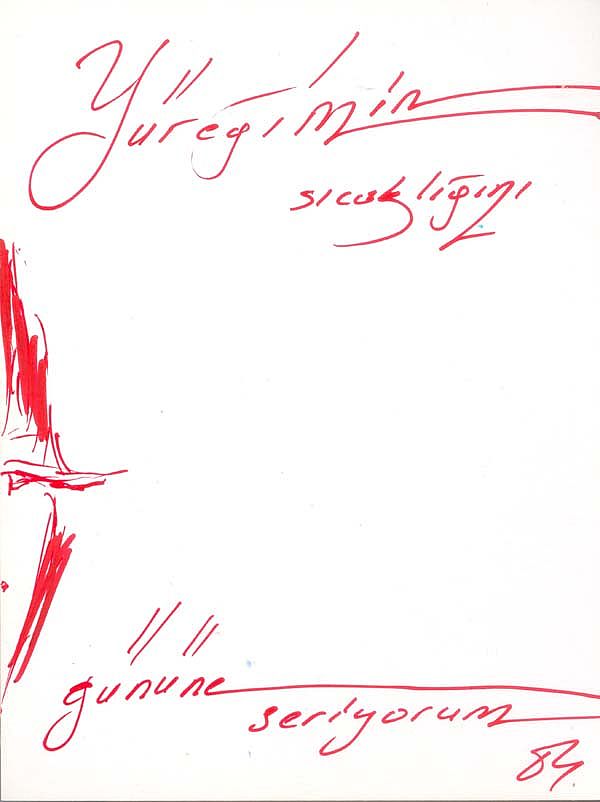 Yüreğimin
sıcaklığını
gününe
seriyorum
84